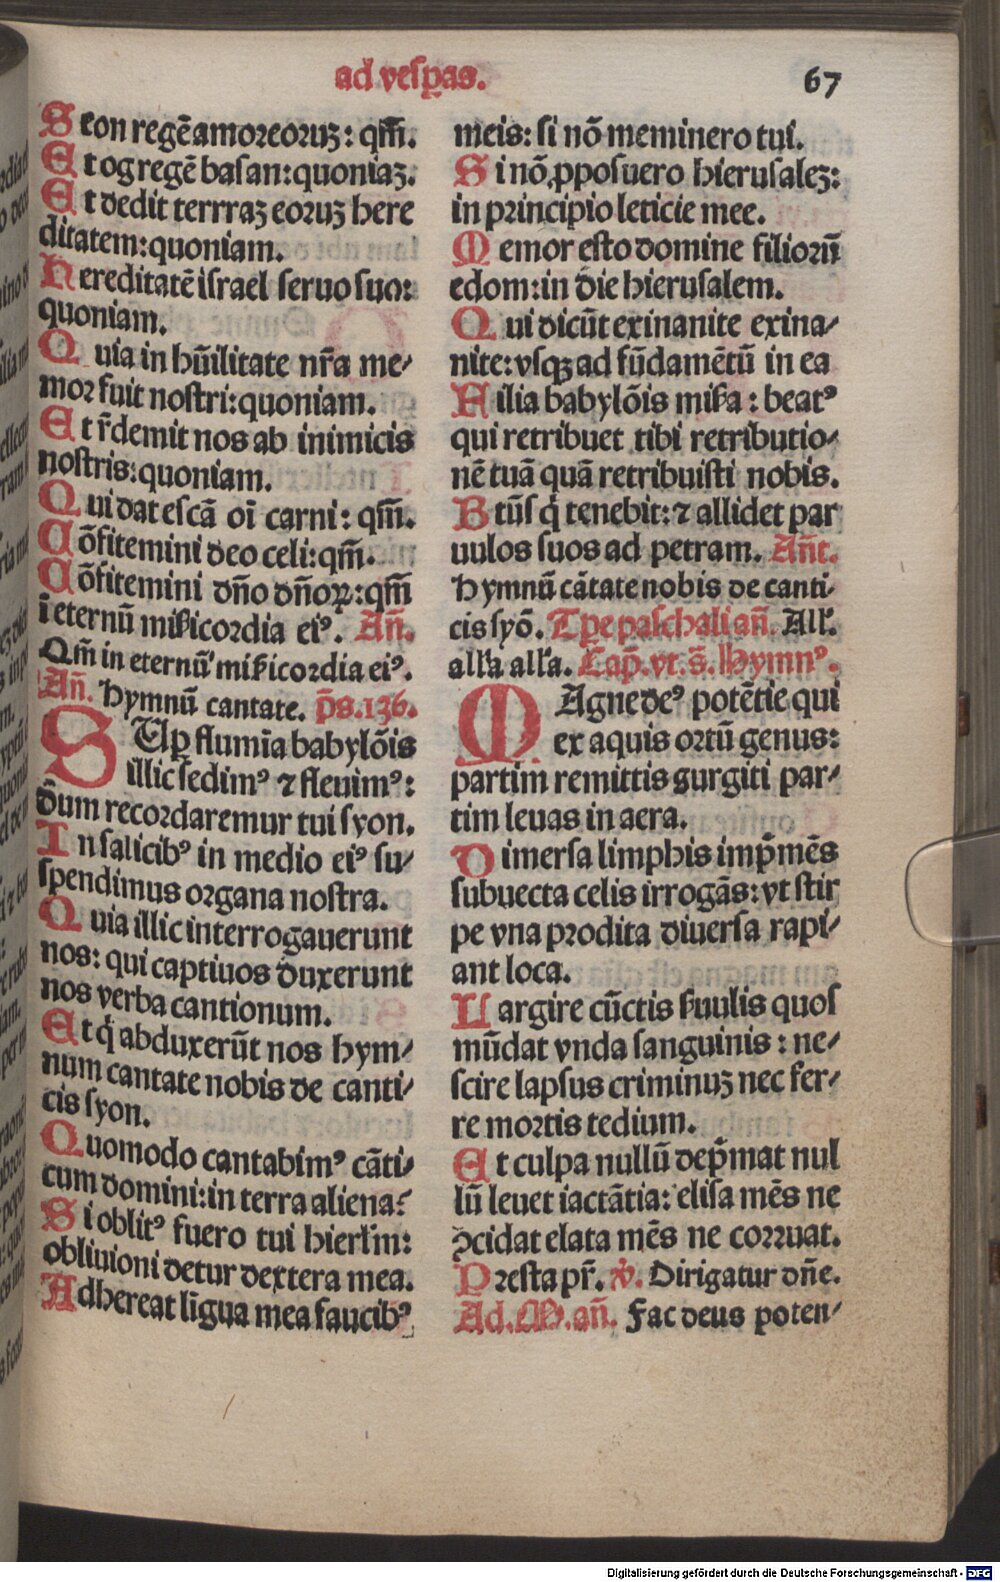 ad vesꝑas.
67
Seon regē amorreoruꝫ: qm̄.
Et og regē basan: quoniaꝫ.
Et dedit terrraꝫ eoruꝫ here
ditatem: quoniam.
Hereditatē israel seruo suo:
quoniam.
Quia in hūilitate nr̄a me⸗
mor fuit nostri: quoniam.
Et r̄demit nos ab inimicis
nostris: quoniam.
Qui dat escā oī carni: qm̄.
Cōfitemini deo celi: qm̄.
Cōfitemini dn̄o dn̄oꝝ: qm̄
ī eternū mīcicordia eiꝰ. An̄.
Qm̄ in eternū mīcicordia eiꝰ.
An̄. Hymnū cantate. p̄s. 136.
SUꝑ flumīa babylōis
illic sedimꝰ ⁊ fleuimꝰ:
dum recordaremur tui syon.
In salicibꝰ in medio eiꝰ su⸗
spendimus organa nostra.
Quia illic interrogauerunt
nos: qui captiuos duxerunt
nos verba cantionum.
Et q̇ abduxerūt nos hym⸗
num cantate nobis de canti⸗
cis syon.
Quomodo cantabimꝰ cāti⸗
cum domini: in terra aliena?
Si oblitꝰ fuero tui hierlm̄:
obliuioni detur dextera mea.
Adhereat līgua mea faucibꝰ
meis: si nō meminero tui.
Si nō ꝓposuero hierusaleꝫ:
in principio leticie mee.
Memor esto domine filiorū
edom: in die hierusalem.
Qui dicūt exinanite exina⸗
nite: vsqꝫ ad fūdamētū in ea
Filia babylōis mīsa: beatꝰ
qui retribuet tibi retributio⸗
nē tuā quā retribuisti nobis.
Btūs q̇ tenebit: ⁊ allidet par
uulos suos ad petram. Ant̄.
Hymnū cātate nobis de canti⸗
cis syō. Tꝑe paschali an̄. All'a.
all'a all'a. Cap̄. vt. s̄. Hymnꝰ.
MAgne deꝰ potētie qui
ex aquis ortū genus:
partim remittis gurgiti par⸗
tim leuas in aera.
Dimersa limphis imp̄mēs
subuecta celis irrogās: vt stir
pe vna prodita diuersa rapi⸗
ant loca.
Largire cūctis s̄uulis quos
mūdat vnda sanguinis: ne⸗
scire lapsus criminuꝫ nec fer⸗
re mortis tedium.
Et culpa nullū dep̄mat nul
lū leuet iactātia: elisa mēs ne
ↄcidat elata mēs ne corruat.
Presta pr̄. ℣. Dirigatur dn̄e.
Ad. M. an̄. Fac deus poten⸗
Digitalisierung gefördert durch die Deutsche Forschungsgemeinschaft - DFG